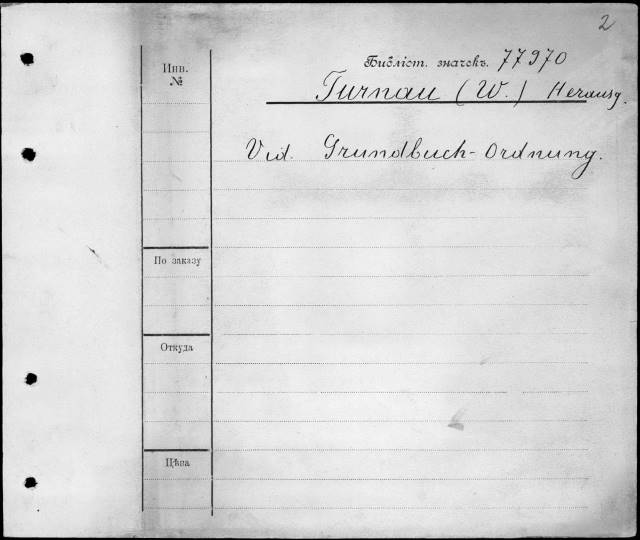 2
Библіот. значекъ. 77970
Инв.
№
Turnau (W.) Herausg.
Vid. Grundbuch-Ordnung.
По заказу
Откуда
Цѣна